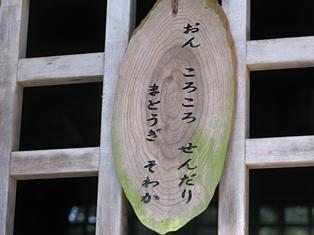 おん ころころ せんだり
まとうぎ そわか